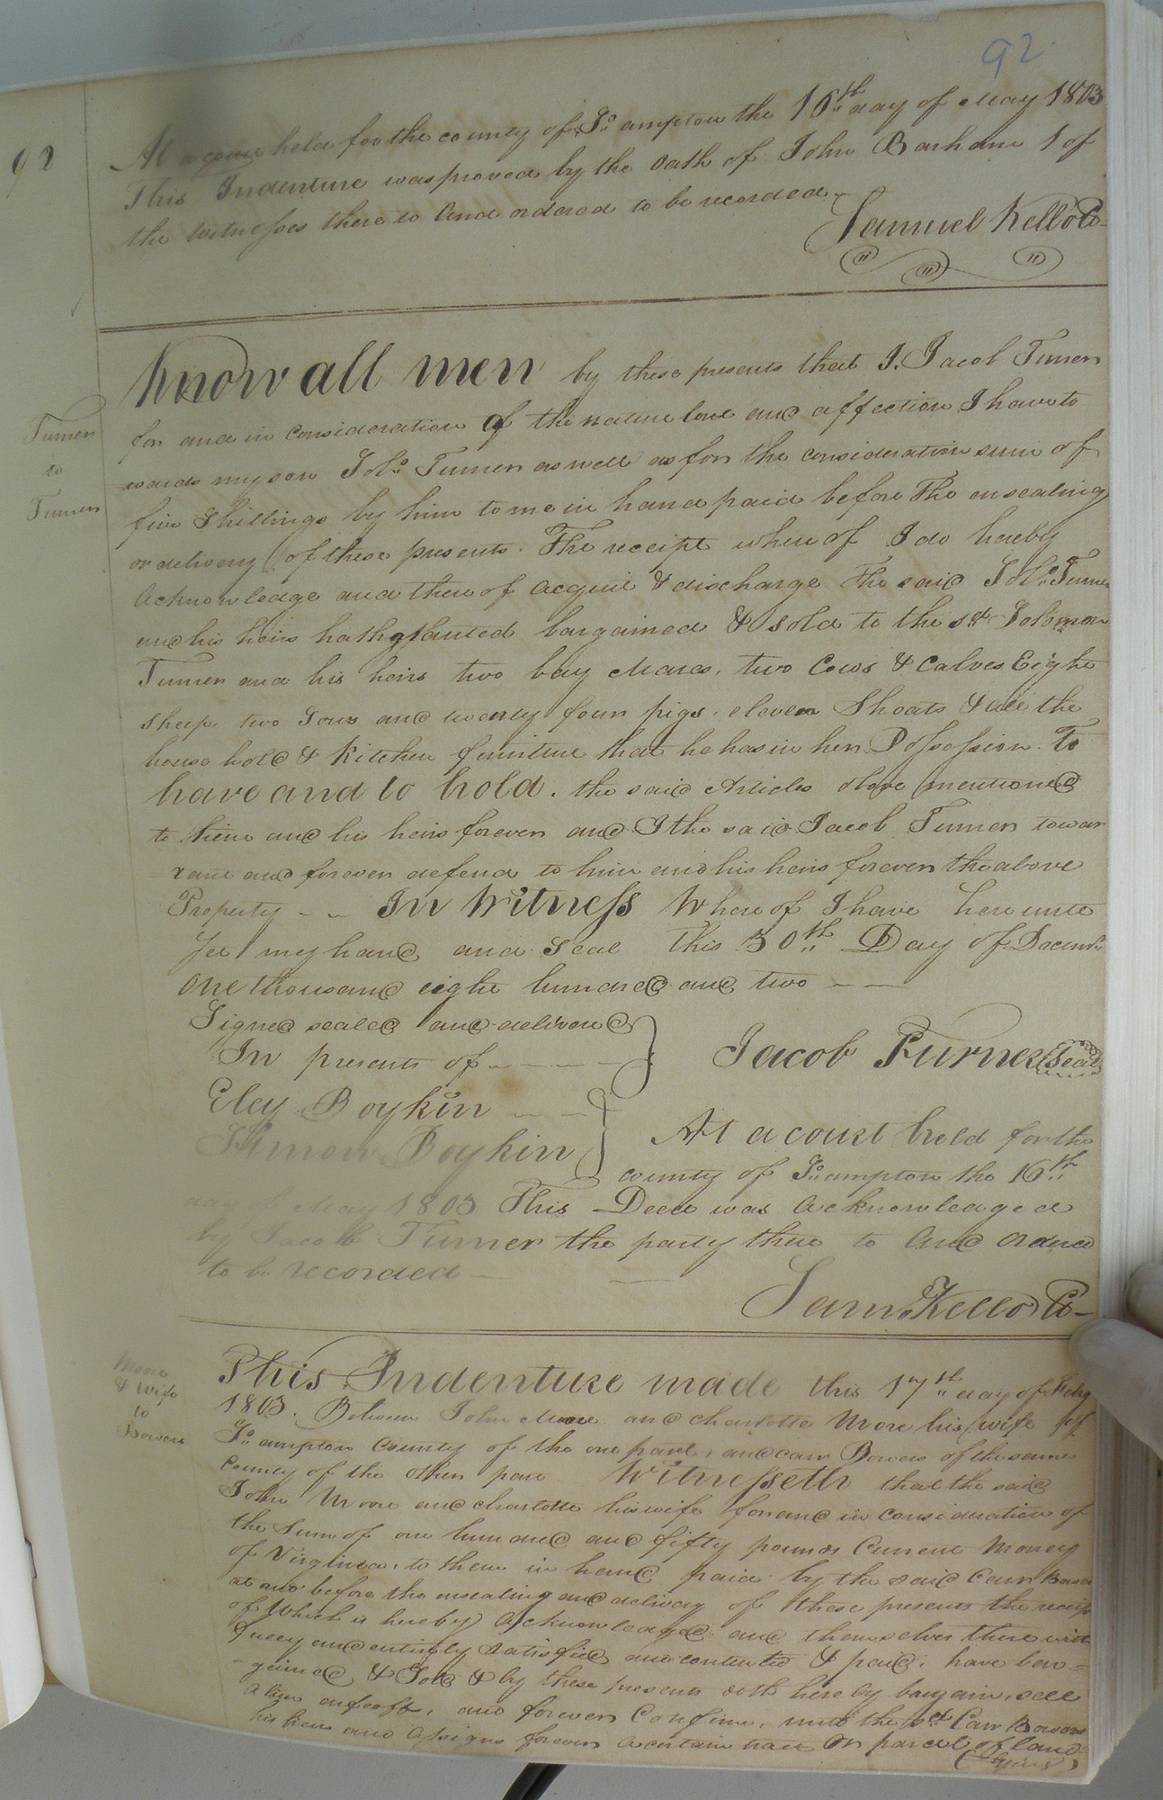 92
92
At a Court held for the county of So. ampton the 16th day of May 1803
This Indenture was proved by the oath of John Barham 1 of
the witnesses there to and ordered to be recorded
Samuel Kello Co
Turner
to
Turner
Know all men by these presents that I, Jacob Turner
for and in consideration of the nature love and affection I have to
wards my son Solo. Turner as well as for the consideration sum of
five Shillings by him to me in hand paid before the ensealing
or delivery of these presents. The receipt where of I do hereby
Acknowledge and there of acquit & discharge the said Solo. Turner
and his heirs hath granted bargained & sold to the sd. Solomon
Turner and his heirs two bay Mares, two Cows & Calves Eight
Sheep two Sows and twenty four pigs. eleven Shoats & all the
house hold & Kitchen furniture that he has in her Possession. To
have and to hold. the said Articles above mentioned
to him and his heirs forever and I the said Jacob Turner to war
rant and forever defend to him and his heirs forever the above
Property - - In Witness Where of I have here unto
Set my hand and Seal this 30th Day of Decembr
One thousand eight hundred and two
Signed sealed and delivered
In presents of
Jacob Turner (Seal)
Eley Boykin
Simon Boykin
At a court held for the
county of So. ampton the 16th
day of May 1803 This Deed was acknowledged
by Jacob Turner the party there to and Ordered
to be recorded
Saml. Kello Co
Moore
& Wife
to
Bowers
This Indenture made this 17th day of Feby
1803. Between John Moore and Charlotte Moore his wife of
So. ampton County of the one part, and Carr Bowers of the same
County of the other part Witnesseth that the said
John Moore and Charlotte his wife for and in consideration of
the Sum of one hundred and fifty pounds Current Money
of Virginia, to them in hand paid by the said Carr Bowers
at and before the ensealing and delivery of these presents the receipt
of Which is hereby acknowledged and themselves there with
fully and entirely Satisfied and contented & paid, have bar=
-gained & Sold & by these presents doth here by bargain, sell
alien enfeoff, and forever Confirm, unto the sd. Carr Bowers
his heirs and Assigns forever a certain tract or parcel of land
(lying)